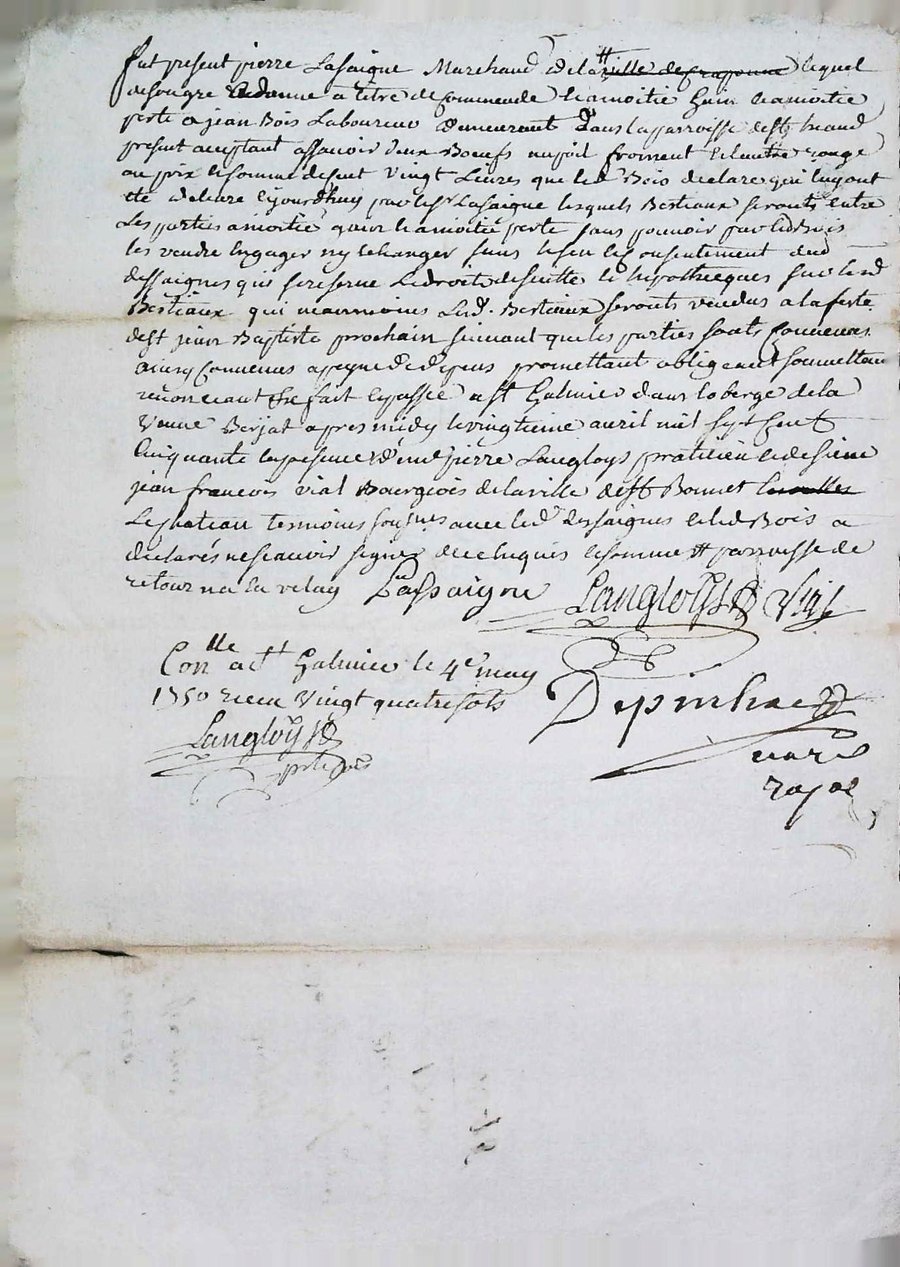 fut present pierre Lasaigne Marchand de la # ville de craponne lequel
de son gre a donné a titre de commende a la moitié Gain et a moitié
perte a jean Bois Laboureur demeurant dans la parroisse de st heand
present aceptant assavoir deux Boeufs un poil froment et lautre rouge
au prix et somme de cent vingt Livres que led Bois declare qui luy ont
été delivre ejourdhuy par led Lasaigne lesquels Bestiaux seronts entre
Les parties a moitié gain et a moitié perte sans pouvoir par led Bois
les vendre Engager ny Echanger sans le consentement dud
dessaignes qui se reserve Le droit de suitte et hipotheques sur lesd
Bestiaux qui neanmoins Lesd. Bestiaux seronts vendus a la feste
de st jean Baptiste prochain suivant que les parties sonts convenues
ainsy convenus a peyne de depens promettant obligeant soumettant
renonceant fait et passé a st Galmier dans loberge de la
Veuve Berjat apres midy le vingtieme avril mil sept cent
Cinquante en presence de me pierre Langloys praticien et de sieur
jean francois vial Bourgeois de la ville de st Bonnet
Le chateau temoins sousnes avec led dessaignes et led Bois a
declarés ne scavoir signer de ce enquis et somme # parroisse de
retournac en velay Lassaigne Langloys Vial
Conlle a st Galmier le 4e may
1750 receu vingt quatre sols
Langloys Depinhac
nore
royal